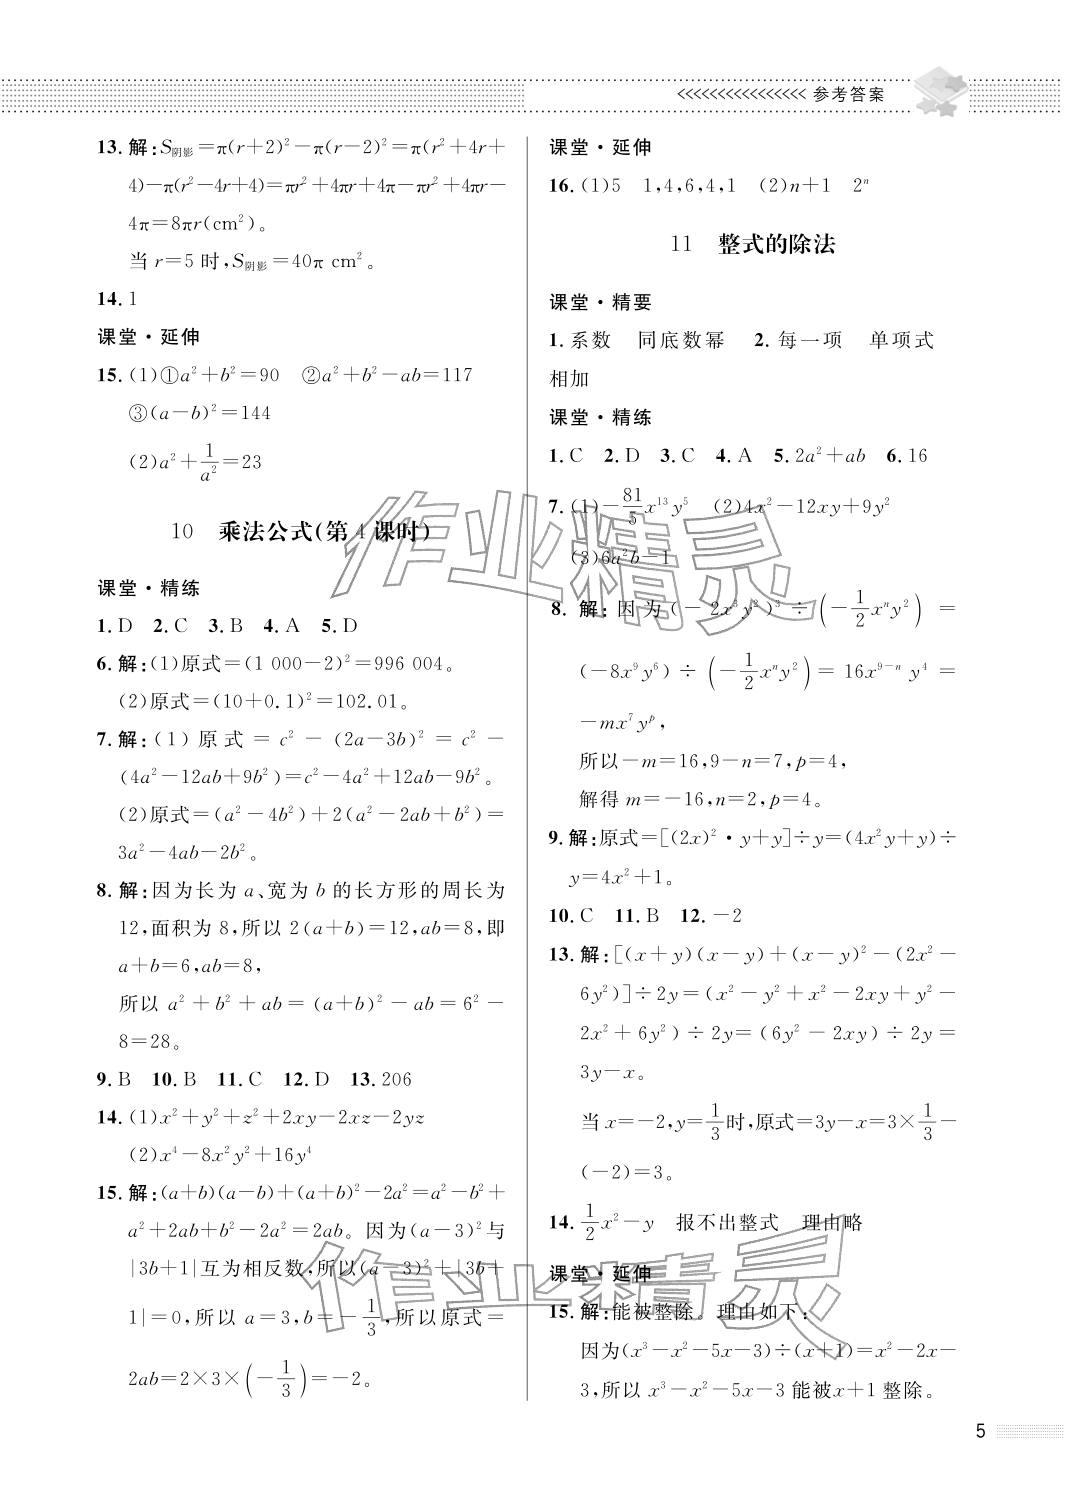 <<<<<<<<<<<<<<<< 参考答案
13. 解:S阴影=π(r+2)²-π(r-2)²=π(r²+4r+
4)-π(r²-4r+4)=πr²+4πr+4π-πr²+4πr-
4π=8πr(cm²)。
当 r=5 时,S阴影=40π cm²。
14. 1
课堂·延伸
15. (1)①a²+b²=90 ②a²+b²-ab=117
③(a-b)²=144
(2)a²+1/a²=23
10 乘法公式(第 4 课时)
课堂·精练
1. D 2. C 3. B 4. A 5. D
6. 解:(1)原式=(1 000-2)²=996 004。
(2)原式=(10+0.1)²=102.01。
7. 解:(1) 原式 = c² - (2a-3b)² = c² -
(4a²-12ab+9b²)=c²-4a²+12ab-9b²。
(2)原式=(a²-4b²)+2(a²-2ab+b²)=
3a²-4ab-2b²。
8. 解:因为长为 a、宽为 b 的长方形的周长为
12,面积为 8,所以 2(a+b)=12,ab=8,即
a+b=6,ab=8,
所以 a²+b²+ab=(a+b)²-ab=6²-
8=28。
9. B 10. B 11. C 12. D 13. 206
14. (1)x²+y²+z²+2xy-2xz-2yz
(2)x⁴-8x²y²+16y⁴
15. 解:(a+b)(a-b)+(a+b)²-2a²=a²-b²+
a²+2ab+b²-2a²=2ab。因为(a-3)²与
|3b+1|互为相反数,所以(a-3)²+|3b+
1|=0,所以 a=3,b=-1/3,所以原式=
2ab=2×3×(-1/3)=-2。
课堂·延伸
16. (1)5 1,4,6,4,1 (2)n+1 2ⁿ
11 整式的除法
课堂·精要
1. 系数 同底数幂 2. 每一项 单项式
相加
课堂·精练
1. C 2. D 3. C 4. A 5. 2a²+ab 6. 16
7. (1)-81/5x¹³y⁵ (2)4x²-12xy+9y²
(3)6a²b-1
8. 解:因为(-2x³y²)³÷(-1/2xⁿy²)=
(-8x⁹y⁶)÷(-1/2xⁿy²)=16x⁹⁻ⁿy⁴=
-mx⁷yᵖ,
所以-m=16,9-n=7,p=4,
解得 m=-16,n=2,p=4。
9. 解:原式=[(2x)²·y+y]÷y=(4x²y+y)÷
y=4x²+1。
10. C 11. B 12. -2
13. 解:[(x+y)(x-y)+(x-y)²-(2x²-
6y²)]÷2y=(x²-y²+x²-2xy+y²-
2x²+6y²)÷2y=(6y²-2xy)÷2y=
3y-x。
当 x=-2,y=1/3时,原式=3y-x=3×1/3-
(-2)=3。
14. 1/2x²-y 报不出整式 理由略
课堂·延伸
15. 解:能被整除。理由如下:
因为(x³-x²-5x-3)÷(x+1)=x²-2x-
3,所以 x³-x²-5x-3 能被x+1 整除。
5
作业精灵
作业精灵